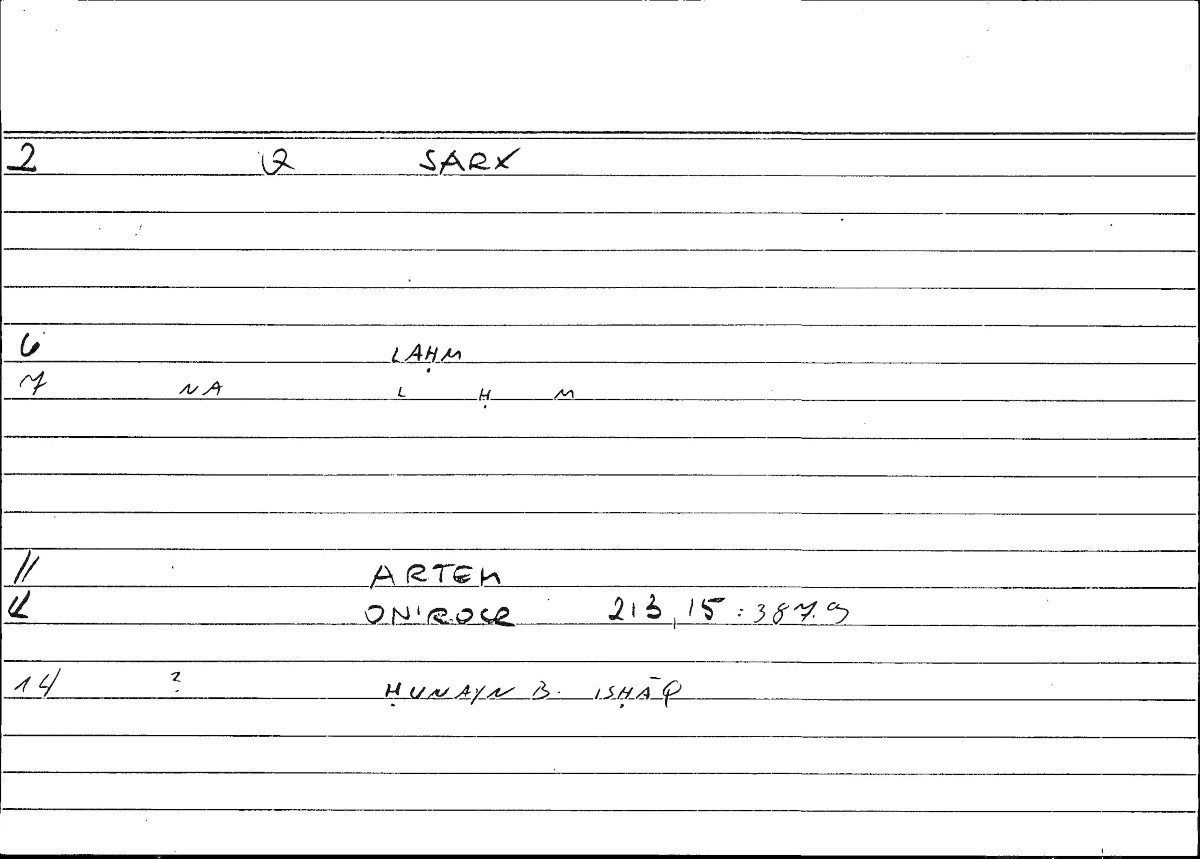 2 SARX
6 LAḤM
7 NA L Ḥ M
11 ARTEM
12 ONIROCR 213,15:387.9
14 ? ḤUNAYN B. ISḤĀQ